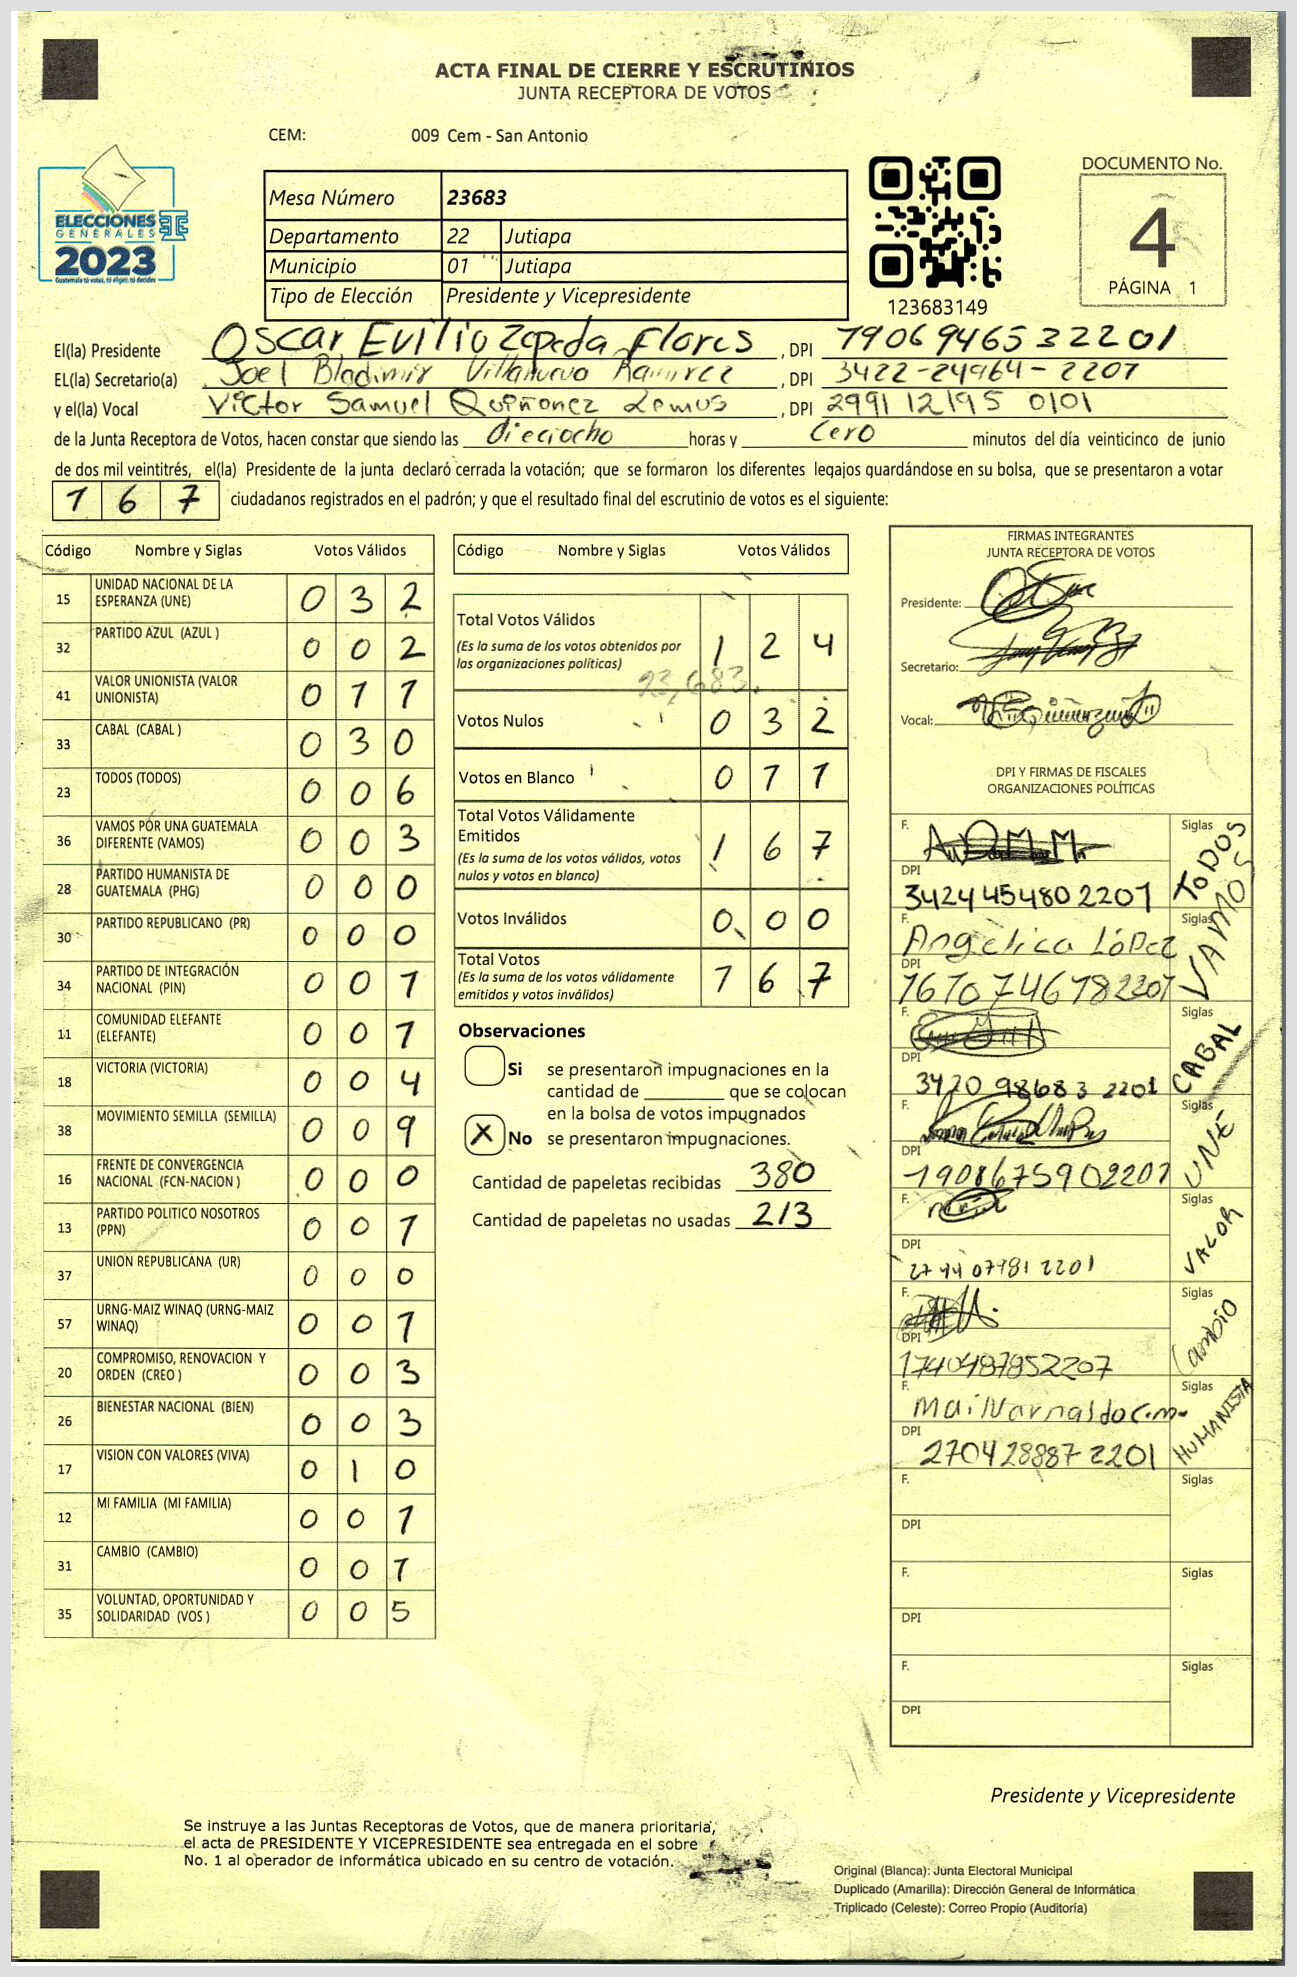 ACTA FINAL DE CIERRE Y ESCRUTINIOS
JUNTA RECEPTORA DE VOTOS
CEM: 009 Cem - San Antonio
ELECCIONES
GENERALES
2023
Guatemala tú votas, tú eliges, tú decides
Mesa Número 23683
Departamento 22 Jutiapa
Municipio 01 Jutiapa
Tipo de Elección Presidente y Vicepresidente
123683149
DOCUMENTO No.
4
PÁGINA 1
El(la) Presidente Oscar Evilio Zepeda Flores, DPI 1906946532201
EL(la) Secretario(a) Joel Bladimir Villanueva Ramirez, DPI 3422-24964-2201
y el(la) Vocal Victor Samuel Quiñonez Lemus, DPI 2991 12195 0101
de la Junta Receptora de Votos, hacen constar que siendo las dieciocho horas y cero minutos del día veinticinco de junio
de dos mil veintitrés, el(la) Presidente de la junta declaró cerrada la votación; que se formaron los diferentes legajos guardándose en su bolsa, que se presentaron a votar
1 6 7 ciudadanos registrados en el padrón; y que el resultado final del escrutinio de votos es el siguiente:
Código Nombre y Siglas Votos Válidos
15 UNIDAD NACIONAL DE LA ESPERANZA (UNE) 0 3 2
32 PARTIDO AZUL (AZUL ) 0 0 2
41 VALOR UNIONISTA (VALOR UNIONISTA) 0 1 1
33 CABAL (CABAL ) 0 3 0
23 TODOS (TODOS) 0 0 6
36 VAMOS POR UNA GUATEMALA DIFERENTE (VAMOS) 0 0 3
28 PARTIDO HUMANISTA DE GUATEMALA (PHG) 0 0 0
30 PARTIDO REPUBLICANO (PR) 0 0 0
34 PARTIDO DE INTEGRACIÓN NACIONAL (PIN) 0 0 1
11 COMUNIDAD ELEFANTE (ELEFANTE) 0 0 1
18 VICTORIA (VICTORIA) 0 0 4
38 MOVIMIENTO SEMILLA (SEMILLA) 0 0 9
16 FRENTE DE CONVERGENCIA NACIONAL (FCN-NACION ) 0 0 0
13 PARTIDO POLITICO NOSOTROS (PPN) 0 0 1
37 UNION REPUBLICANA (UR) 0 0 0
57 URNG-MAIZ WINAQ (URNG-MAIZ WINAQ) 0 0 1
20 COMPROMISO, RENOVACION Y ORDEN (CREO ) 0 0 3
26 BIENESTAR NACIONAL (BIEN) 0 0 3
17 VISION CON VALORES (VIVA) 0 1 0
12 MI FAMILIA (MI FAMILIA) 0 0 1
31 CAMBIO (CAMBIO) 0 0 1
35 VOLUNTAD, OPORTUNIDAD Y SOLIDARIDAD (VOS ) 0 0 5
Código Nombre y Siglas Votos Válidos
Total Votos Válidos
(Es la suma de los votos obtenidos por
las organizaciones políticas) 1 2 4
23,683.
Votos Nulos 0 3 2
Votos en Blanco 0 1 1
Total Votos Válidamente
Emitidos
(Es la suma de los votos válidos, votos
nulos y votos en blanco) 1 6 7
Votos Inválidos 0 0 0
Total Votos
(Es la suma de los votos válidamente
emitidos y votos inválidos) 1 6 7
Observaciones
Si se presentaron impugnaciones en la
cantidad de ________ que se colocan
en la bolsa de votos impugnados
X No se presentaron impugnaciones.
Cantidad de papeletas recibidas 380
Cantidad de papeletas no usadas 213
FIRMAS INTEGRANTES
JUNTA RECEPTORA DE VOTOS
Presidente:
Secretario:
Vocal:
DPI Y FIRMAS DE FISCALES
ORGANIZACIONES POLÍTICAS
F. Siglas TODOS
DPI 3424454802201
F. Angelica López Siglas VAMOS
DPI 1670746782201
F. Siglas CABAL
DPI 3420 98683 2201
F. Siglas UNE
DPI 1908675902201
F. Siglas VALOR
DPI 2744 07981 2201
F. Siglas Cambio
DPI 1740487852207
F. Siglas HUMANISTA
DPI 2704288872201
F. Siglas
DPI
F. Siglas
DPI
F. Siglas
DPI
Presidente y Vicepresidente
Se instruye a las Juntas Receptoras de Votos, que de manera prioritaria,
el acta de PRESIDENTE Y VICEPRESIDENTE sea entregada en el sobre
No. 1 al operador de informática ubicado en su centro de votación.
Original (Blanca): Junta Electoral Municipal
Duplicado (Amarilla): Dirección General de Informática
Triplicado (Celeste): Correo Propio (Auditoría)